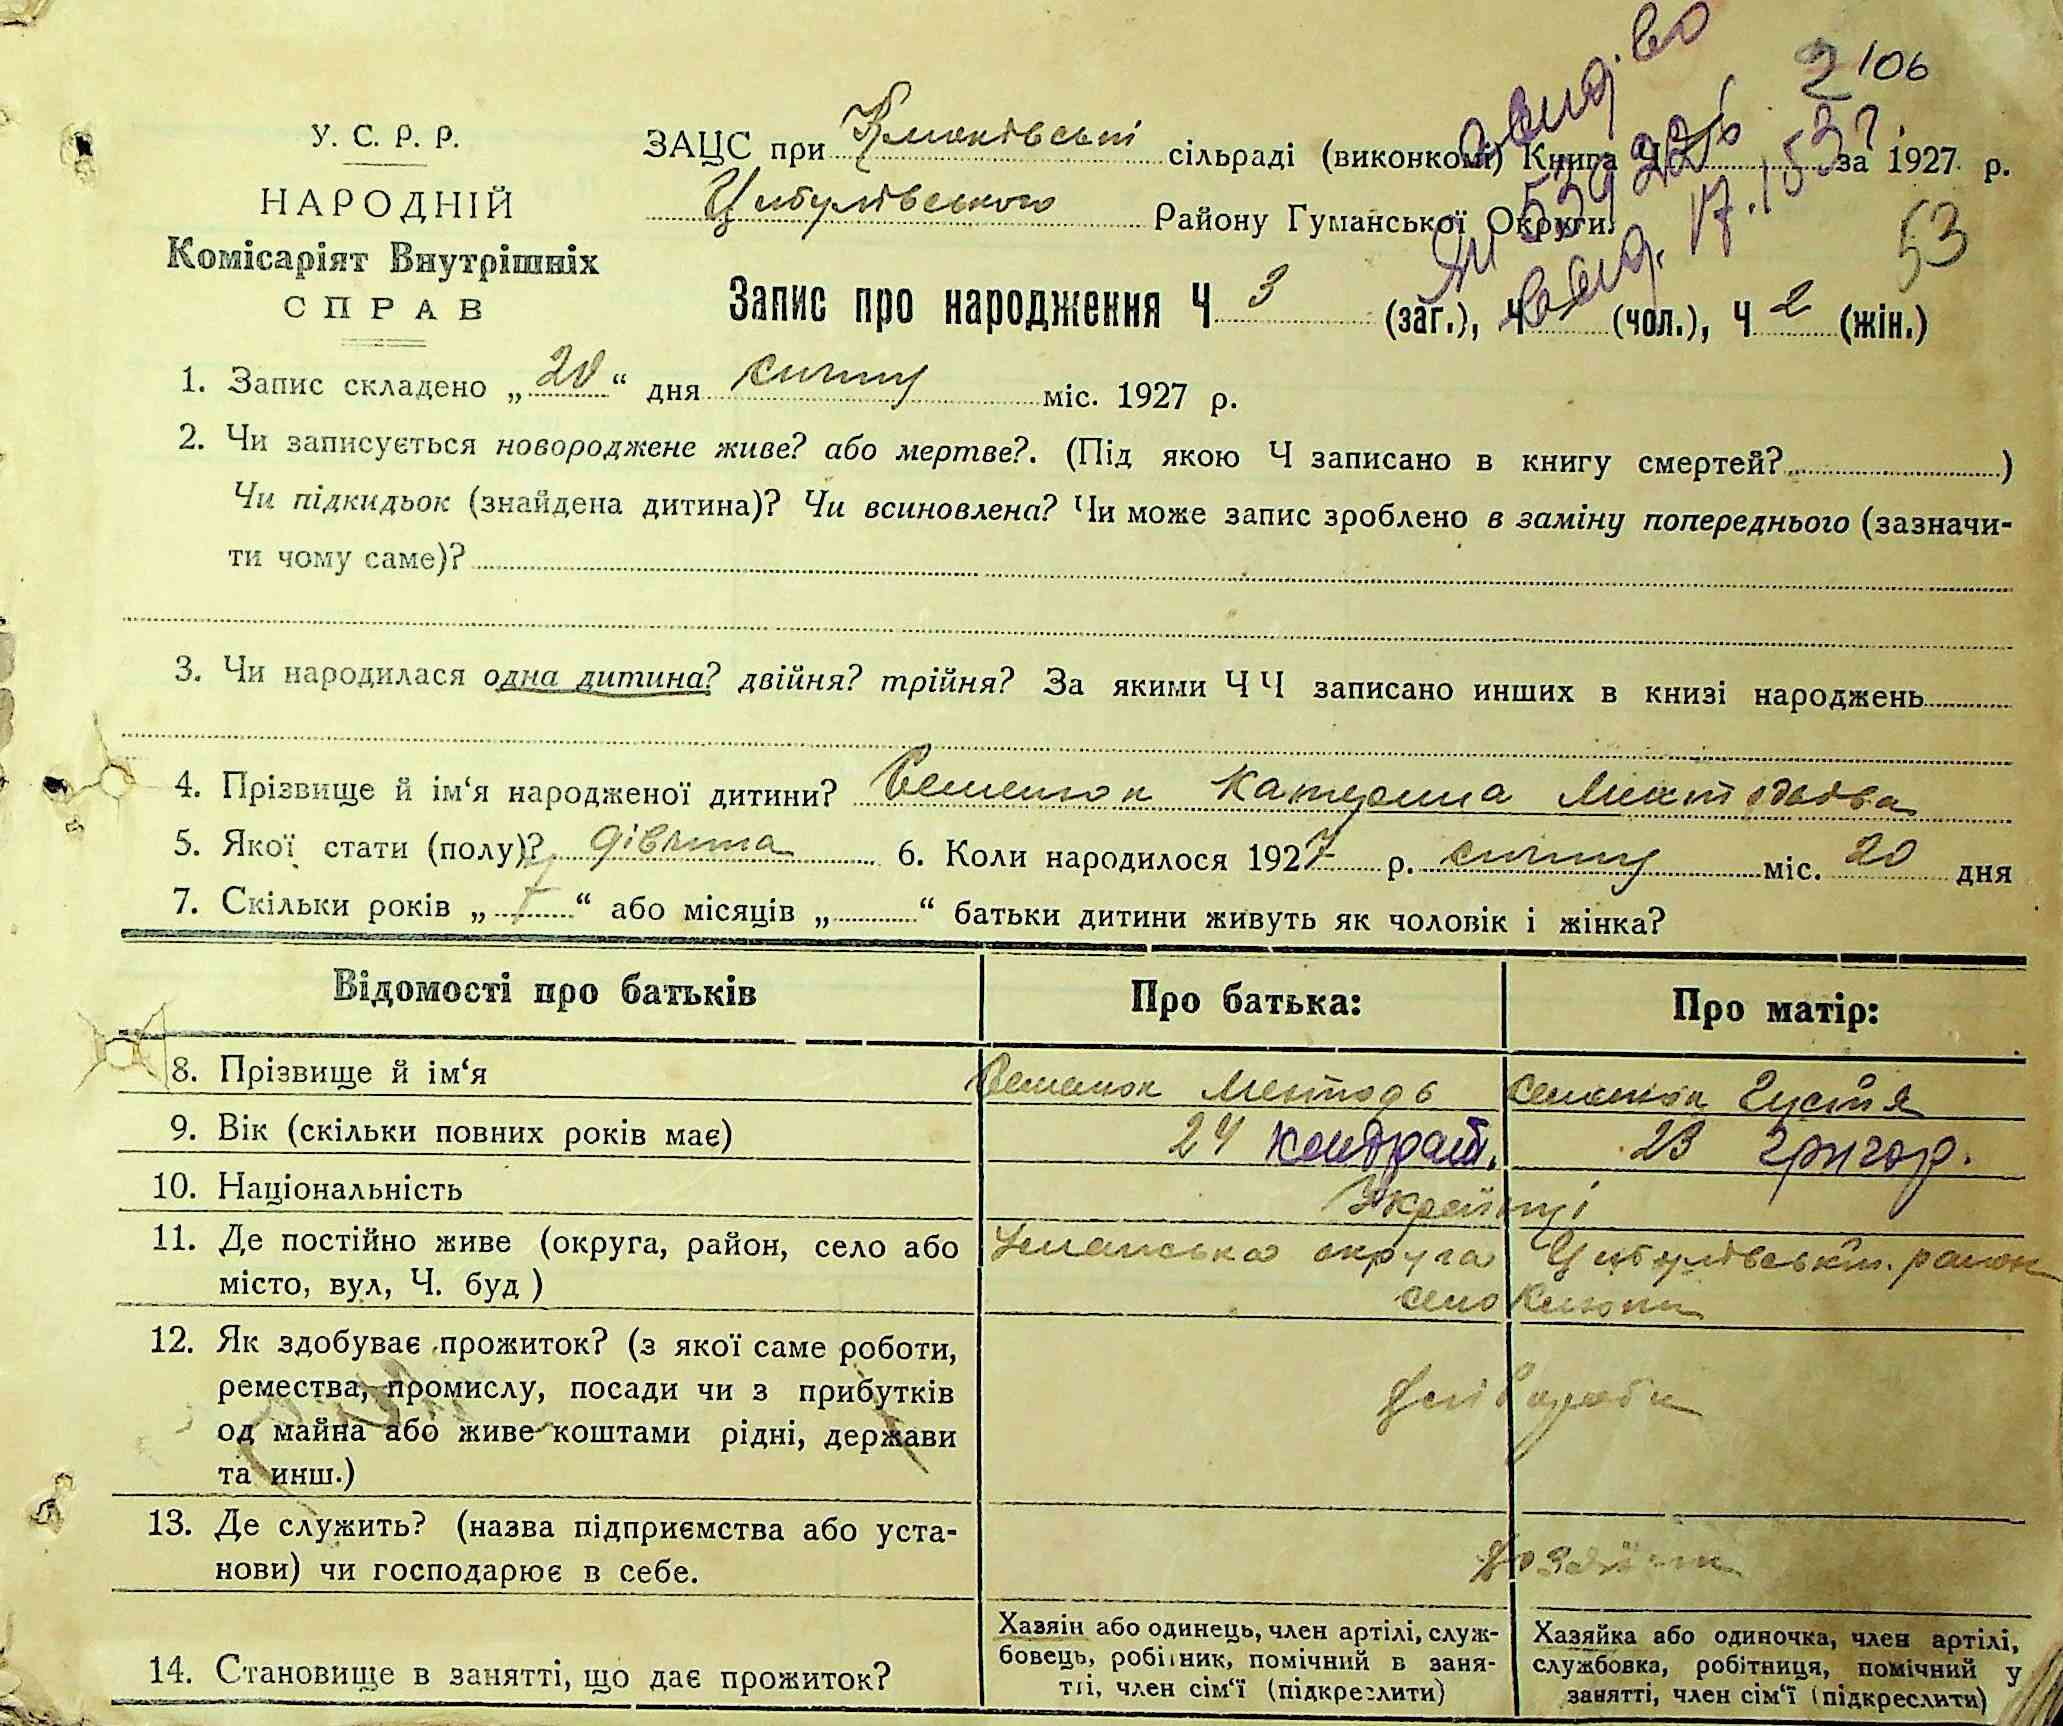 2 106
53
У. С. Р. Р.
НАРОДНІЙ
Комісаріят Внутрішніх
СПРАВ
ЗАЦС при сільраді (виконкомі) Книга Ч за 1927 р.
Цибулівського Району Гуманської Округи.
Запис про народження Ч 3 (заг.), Ч (чол.), Ч 2 (жін.)
1. Запис складено „20“ дня січня міс. 1927 р.
2. Чи записується новороджене живе? або мертве?. (Під якою Ч записано в книгу смертей? )
Чи підкидьок (знайдена дитина)? Чи всиновлена? Чи може запис зроблено в заміну попереднього (зазначи-
ти чому саме)?
3. Чи народилася одна дитина? двійня? трійня? За якими Ч Ч записано инших в книзі народжень
4. Прізвище й ім‘я народженої дитини? Семенюк Катерина
5. Якої стати (полу)? дівчина 6. Коли народилося 1927 р. січня міс. 20 дня
7. Скільки років „ “ або місяців „ “ батьки дитини живуть як чоловік і жінка?
Відомості про батьків Про батька: Про матір:
8. Прізвище й ім‘я Семенюк Методь Семенюк Густя
9. Вік (скільки повних років має) 24 кондрат. 23 григор.
10. Національність Украйнці
11. Де постійно живе (округа, район, село або Уманська округа Цибулівськ. район
місто, вул, Ч. буд ) село Клюки
12. Як здобуває прожиток? (з якої саме роботи,
ремества, промислу, посади чи з прибутків Хлібороби
од майна або живе коштами рідні, держави
та инш.)
13. Де служить? (назва підприємства або уста-
нови) чи господарює в себе.
14. Становище в занятті, що дає прожиток?
Хазяін або одинець, член артілі, служ-
бовець, робітник, помічний в заня-
тті, член сім‘ї (підкреслити)
Хазяйка або одиночка, член артілі,
службовка, робітниця, помічний у
занятті, член сім‘ї (підкреслити)